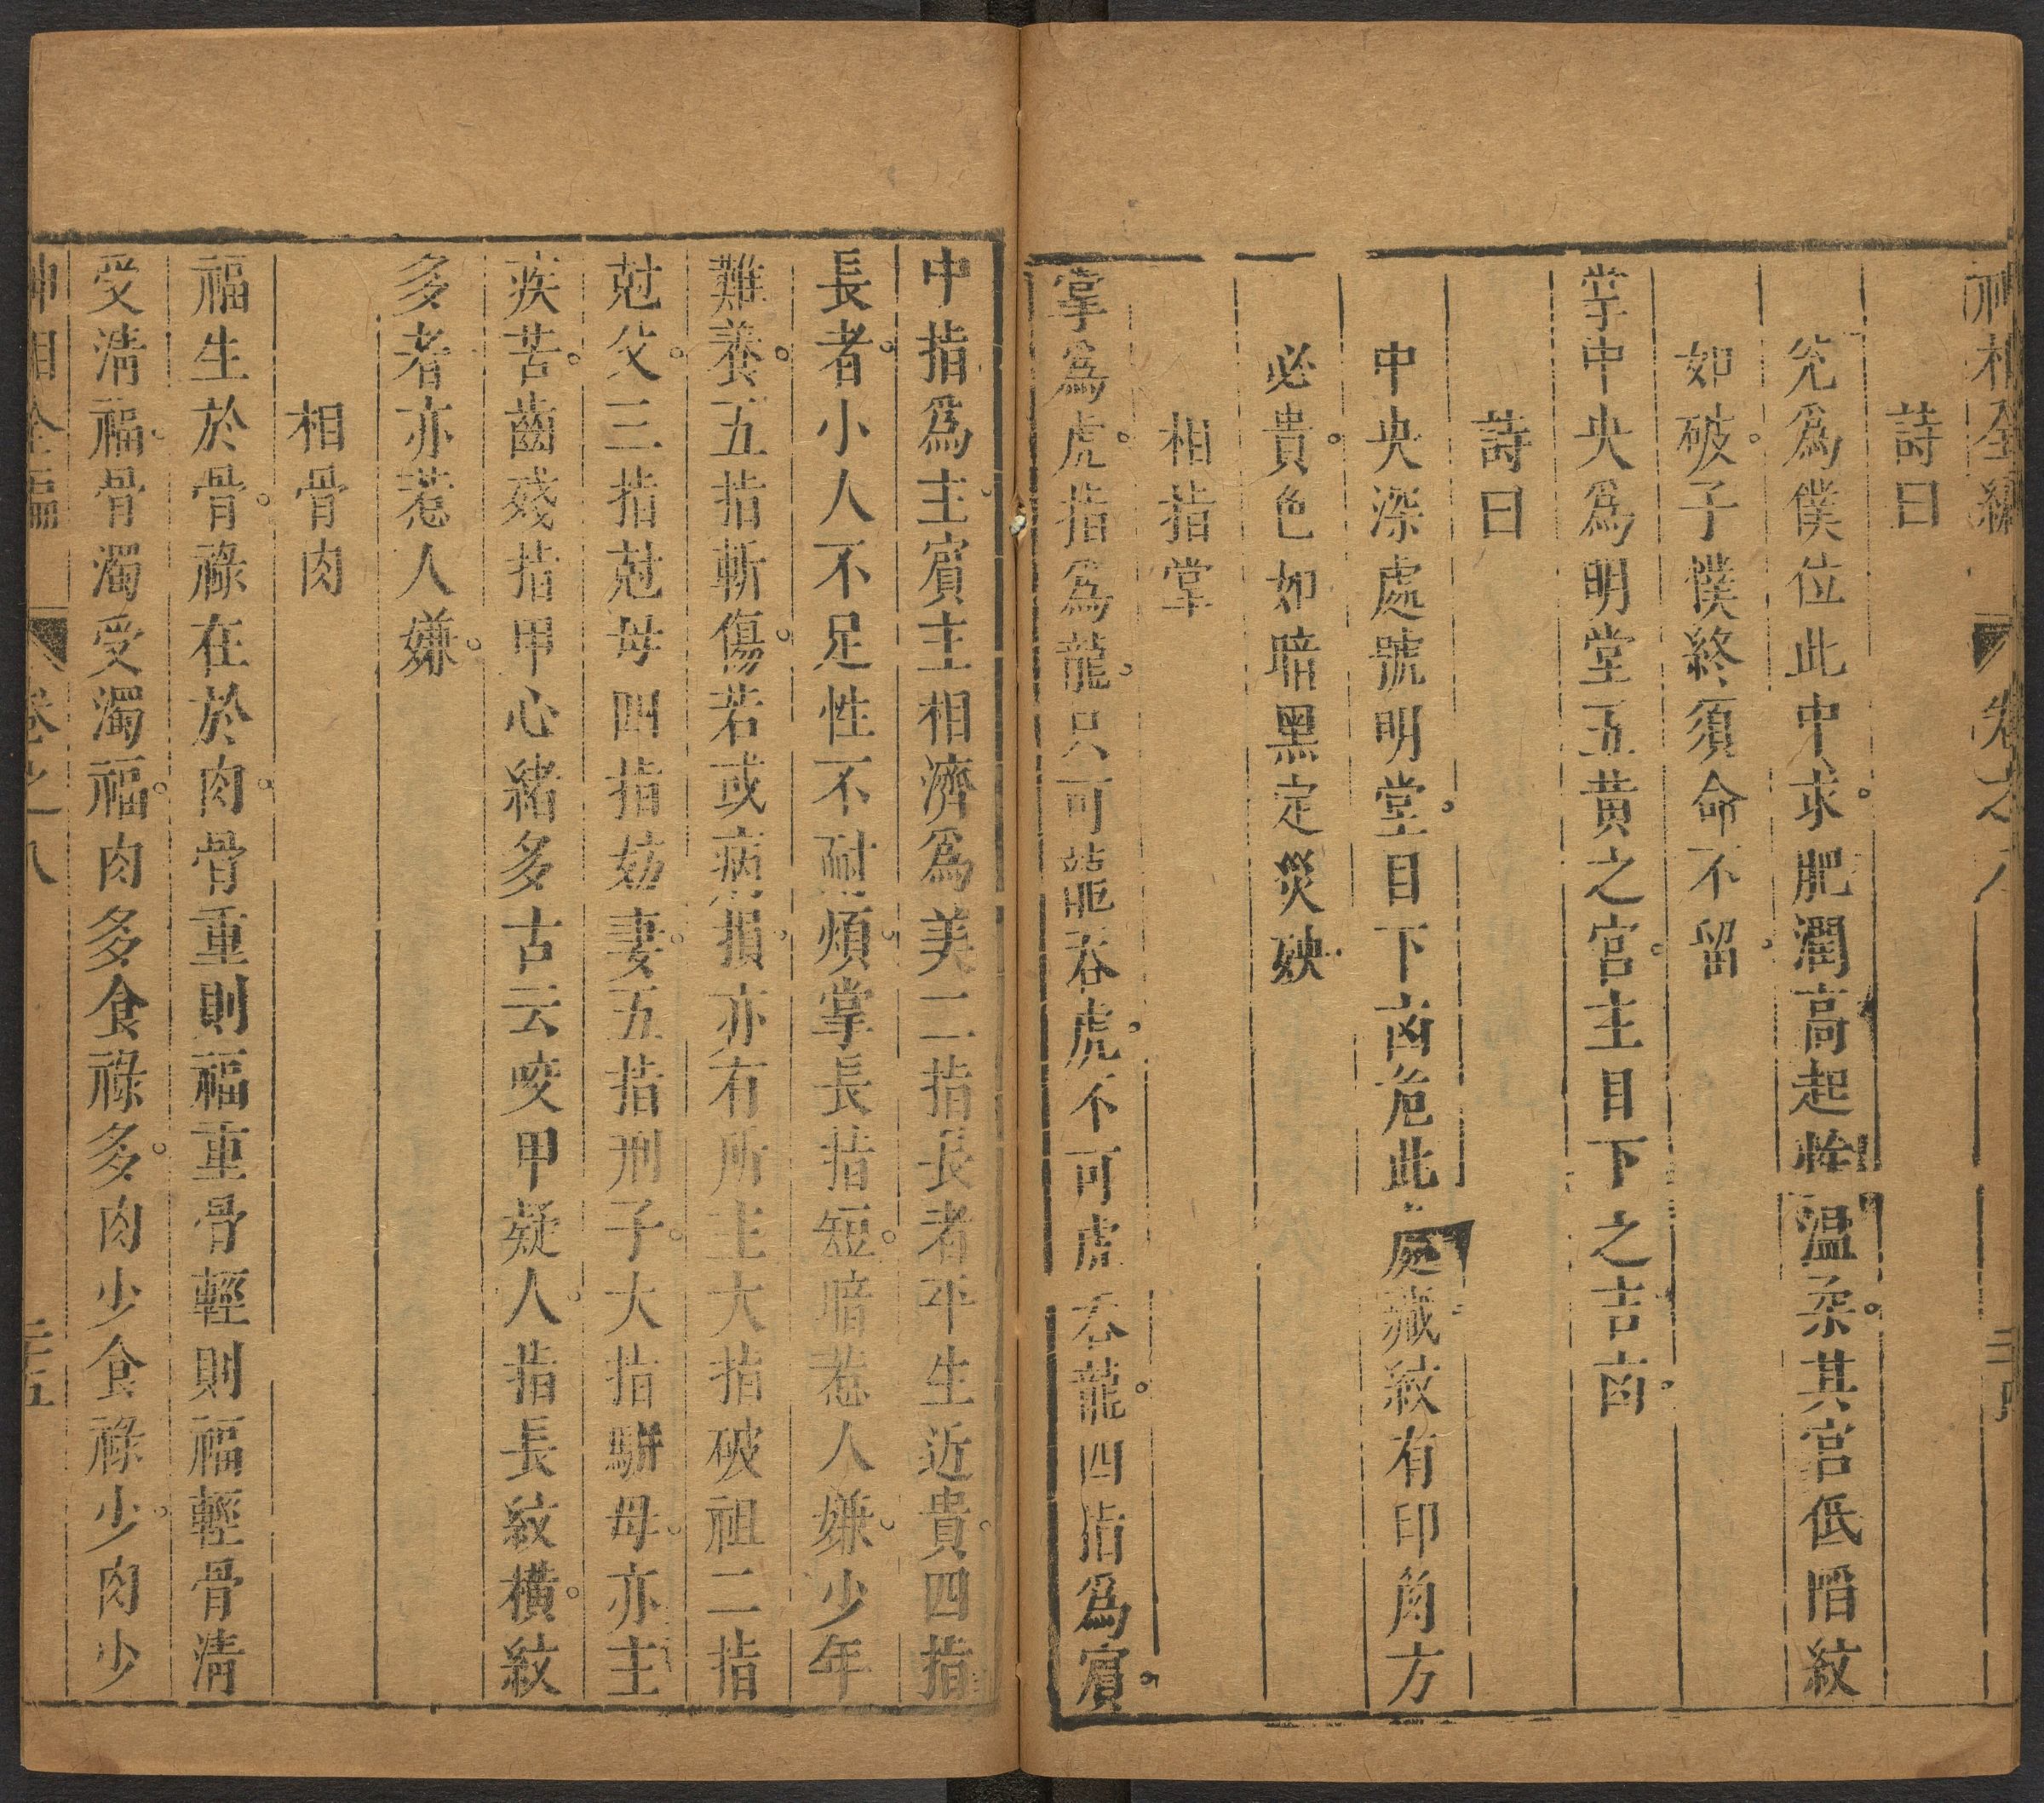 神相全編 卷之八
詩曰
兊爲僕位此中求。肥潤高起性温柔。其宮低陷紋
如破。子僕終須命不留。
掌中央爲明堂五黃之宮。主目下之吉凶。
詩曰
中央深處號明堂。目下凶危此處藏。紋有印角方
必貴。色如暗黑定災殃。
相指掌
掌爲虎。指爲龍。只可龍吞虎。不可虎吞龍。四指爲賓。
中指爲主。賓主相濟爲美二指長者平生近貴。四指
長者。小人不足性不耐煩。掌長指短。暗惹人嫌。少年
難養。五指斬傷。若或病損。亦有所主大指破祖二指
尅父。三指尅母四指妨妻。五指刑子。大指騈母。亦主
疾苦。齒殘指甲心緒多古云咬甲疑人。指長紋橫。紋
多者亦惹人嫌。
相骨肉
福生於骨。祿在於肉。骨重則福重骨輕則福輕骨淸
受淸福。骨濁受濁福。肉多食祿多。肉少食祿少。肉少
神相全編 卷之八 二十五